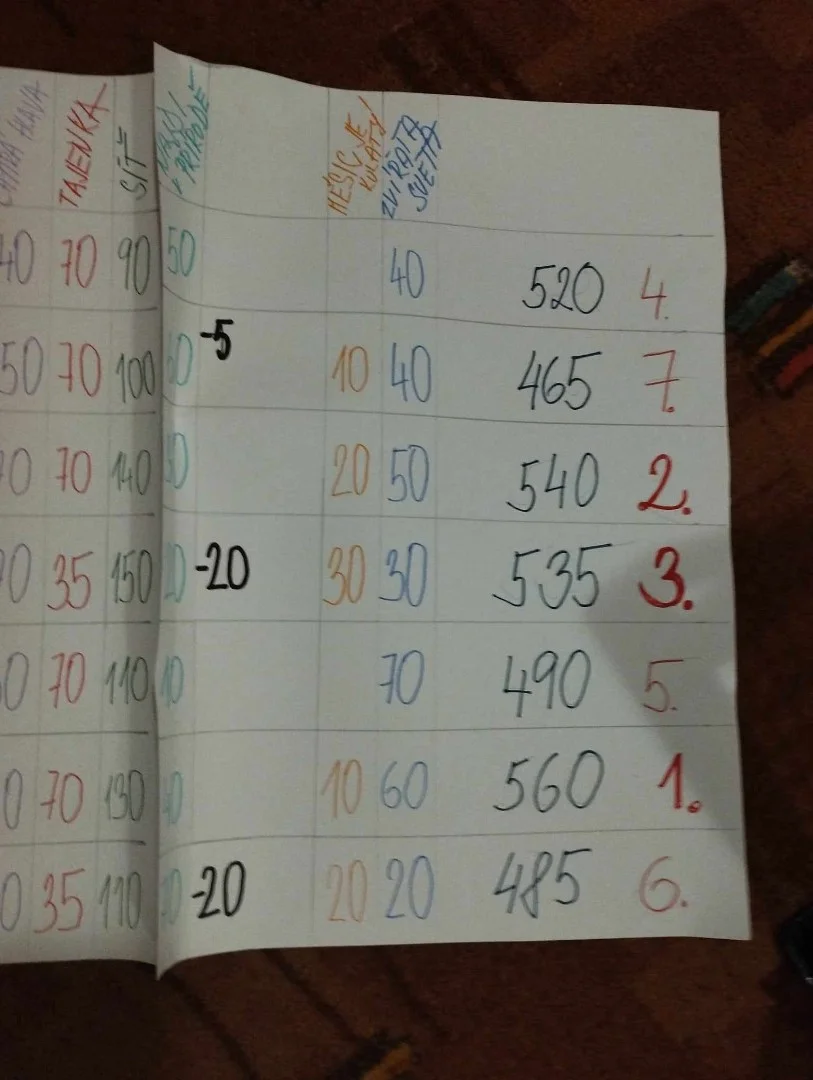 HLAVA TAJENKA SÍŤ PŘÍRODĚ MĚSÍC JE KULATÝ ZVÍŘATA SVĚTA
40 70 90 50 40 520 4.
50 70 100 -5 10 40 465 7.
70 140 20 50 540 2.
35 150 -20 30 30 535 3.
70 110 10 70 490 5.
70 130 10 60 560 1.
35 110 -20 20 20 485 6.